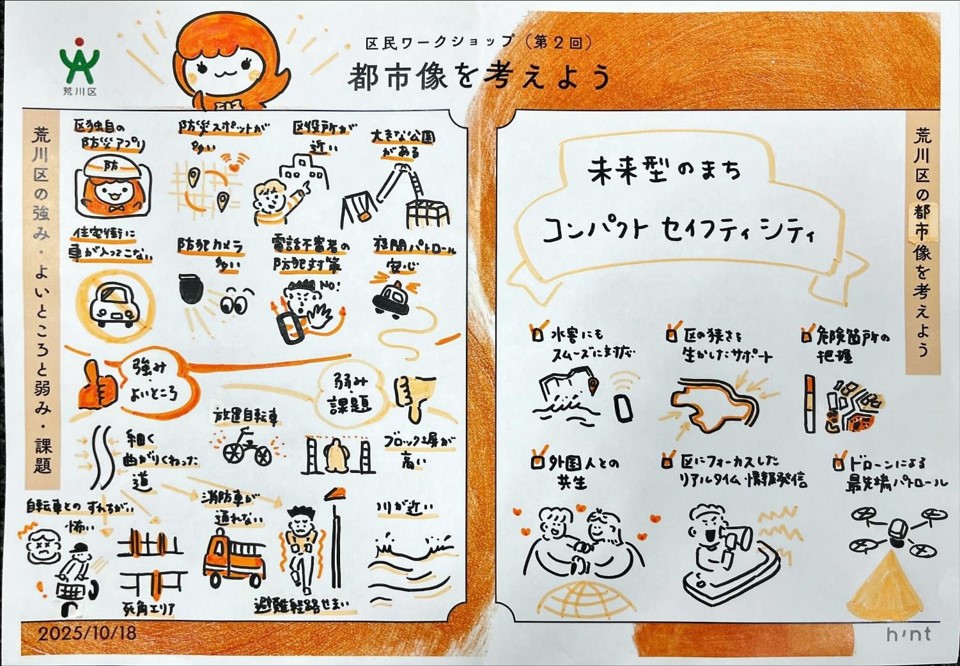 荒川区
区民ワークショップ（第2回）
都市像を考えよう
荒川区の強み・よいところと弱み・課題
区独自の
防災アプリ
防
防災スポットが
多い
区役所が
近い
大きな公園
がある
住宅街に
車が入ってこない
防犯カメラ
多い
電話不審者の
防犯対策
NO!
夜間パトロール
安心
強み
よいところ
弱み
課題
細く
曲がりくねった
道
放置自転車
ブロック塀が
高い
自転車とのすれちがい
怖い
死角エリア
消防車が
通れない
避難経路せまい
川が近い
2025/10/18
荒川区の都市像を考えよう
未来型のまち
コンパクト セイフティ シティ
水害にも
スムーズに対応
区の狭さを
生かしたサポート
危険箇所の
把握
外国人との
共生
区にフォーカスした
リアルタイム情報発信
ドローンによる
最先端パトロール
hint